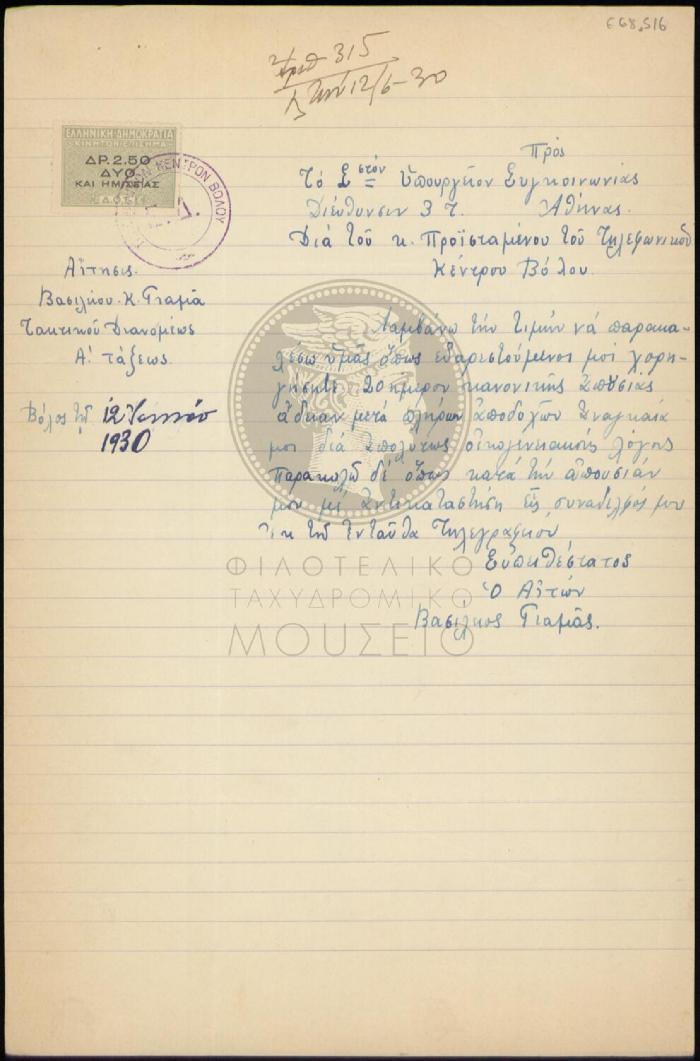 668,516
Ἀριθ 315
τῇ 12/6-30
ΕΛΛΗΝΙΚΗ ΔΗΜΟΚΡΑΤΙΑ
ΚΙΝΗΤΟΝ ΕΠΙΣΗΜΑ
ΔΡ. 2.50
ΔΥΟ
ΚΑΙ ΗΜΙΣΕΙΑΣ
ΚΕΝΤΡΟΝ ΒΟΛΟΥ
Πρὸς
Τὸ Σστὸν Ὑπουργεῖον Συγκοινωνίας
Διεύθυνσιν 3 Τ. Ἀθήνας.
Διὰ τοῦ κ. Προϊσταμένου τοῦ Τηλεφωνικοῦ
Κέντρου Βόλου.
Αἴτησις
Βασιλείου. Κ. Γιαμᾶ
Τακτικοῦ Διανομέως
Α! τάξεως.
Βόλος τῇ 12 Ἰουνίου
1930
Λαμβάνω τὴν τιμὴν νὰ παρακα-
λέσω ὑμᾶς ὅπως εὐαρεστούμενοι μοὶ χορη-
γήσητε 20ήμερον κανονικῆς ἀπουσίας
ἄδειαν μετὰ πλήρων ἀποδοχῶν ἀναγκαία
μοι διὰ ἀπολύτως οἰκογενειακούς λόγους
Παρακαλῶ δὲ ὅπως κατὰ τὴν ἀπουσίαν
μου μὲ ἀντικαταστήση εἷς συνάδελφός μου
ἐκ τοῦ ἐνταῦθα Τηλεγραφείου
Εὐπειθέστατος
Ὁ Αἰτῶν
Βασίλειος Γιαμᾶς.
ΦΙΛΟΤΕΛΙΚΟ
ΤΑΧΥΔΡΟΜΙΚΟ
ΜΟΥΣΕΙΟ